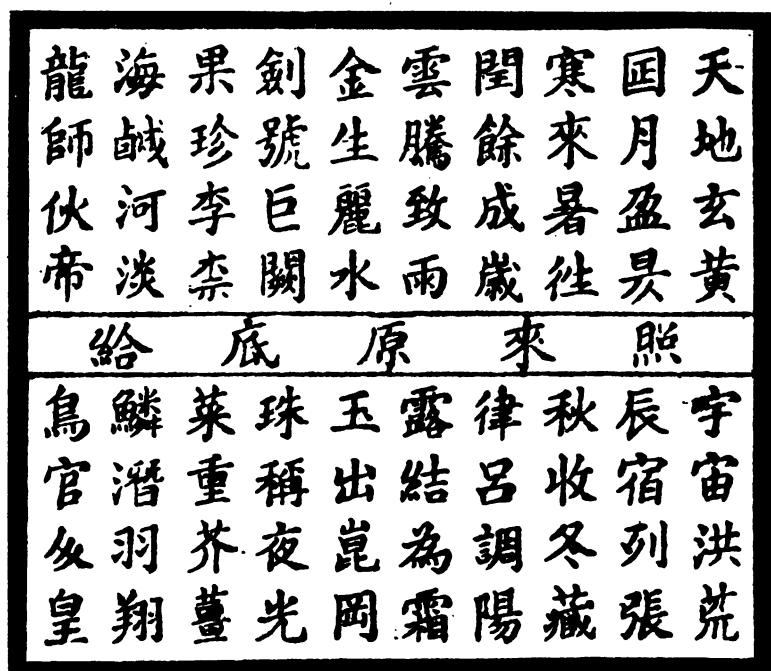 天地玄黃
囸月盈昃
寒來暑徃
閏餘成歲
雲騰致雨
金生麗水
劍號巨闕
果珍李柰
海鹹河淡
龍師伙帝
照來原底給
宇宙洪荒
辰宿列張
秋收冬藏
律呂調陽
露結為霜
玉出崑岡
珠稱夜光
菜重芥薑
鱗潛羽翔
鳥官皇